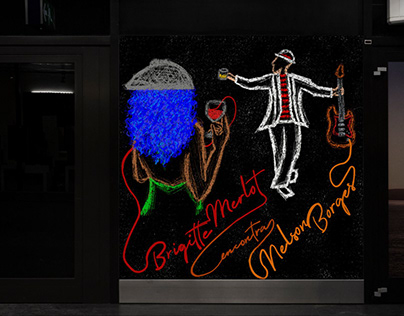 Brigitte Merlot
encontra
Nelson Borges